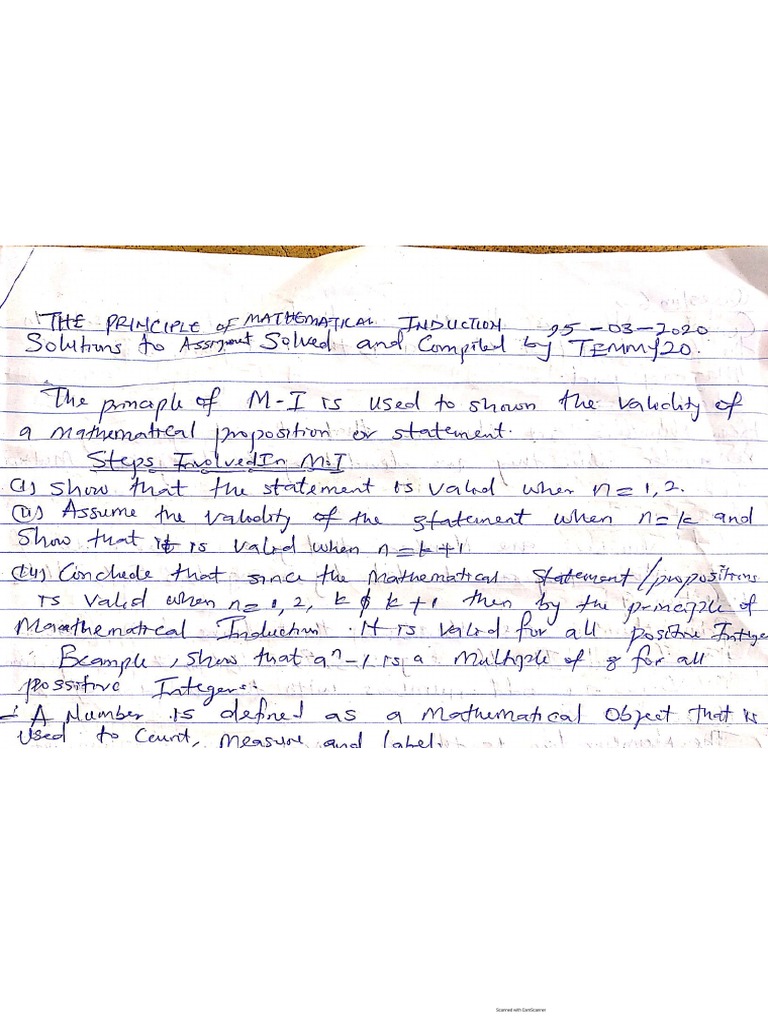 THE PRINCIPLE OF MATHEMATICAL INDUCTION 25-03-2020
Solutions to Assignment Solved and Compiled by TEMMY20.
The principle of M-I is used to shown the validity of
a mathematical proposition or statement.
Steps Involved In M.I
(i) Show that the statement is valid when n=1,2.
(ii) Assume the validity of the statement when n=k and
Show that it is valid when n=k+1
(iii) Conclude that since the Mathematical Statement/propositions
is valid when n=1,2, k & k+1 then by the principle of
Mathematical Induction. It is valid for all positive Intege
Example, show that a^n-1 is a multiple of 8 for all
possitive Integers.
A Number is defined as a Mathematical Object that is
used to Count, Measure and label.
Scanned with CamScanner